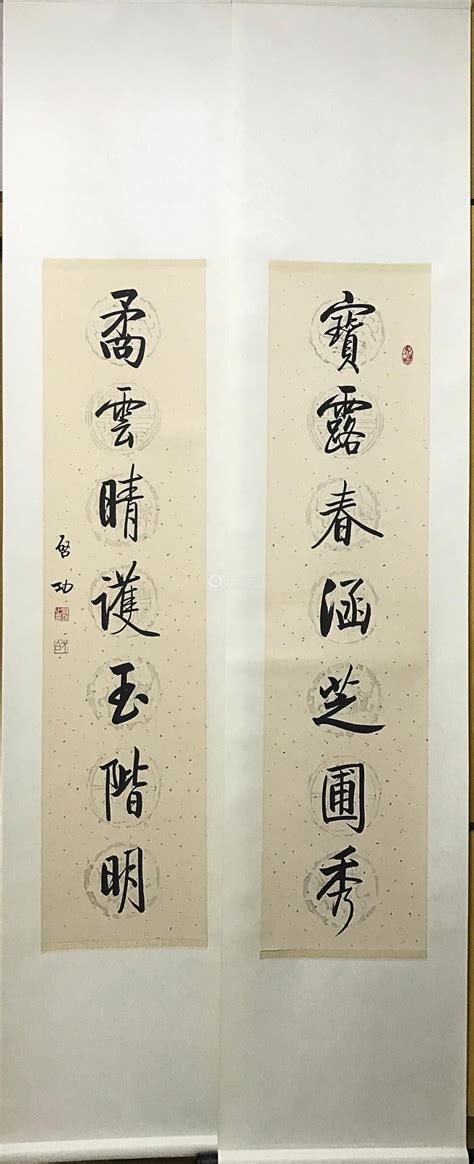 寶露春涵芝圃秀
矞雲晴護玉階明
啓功